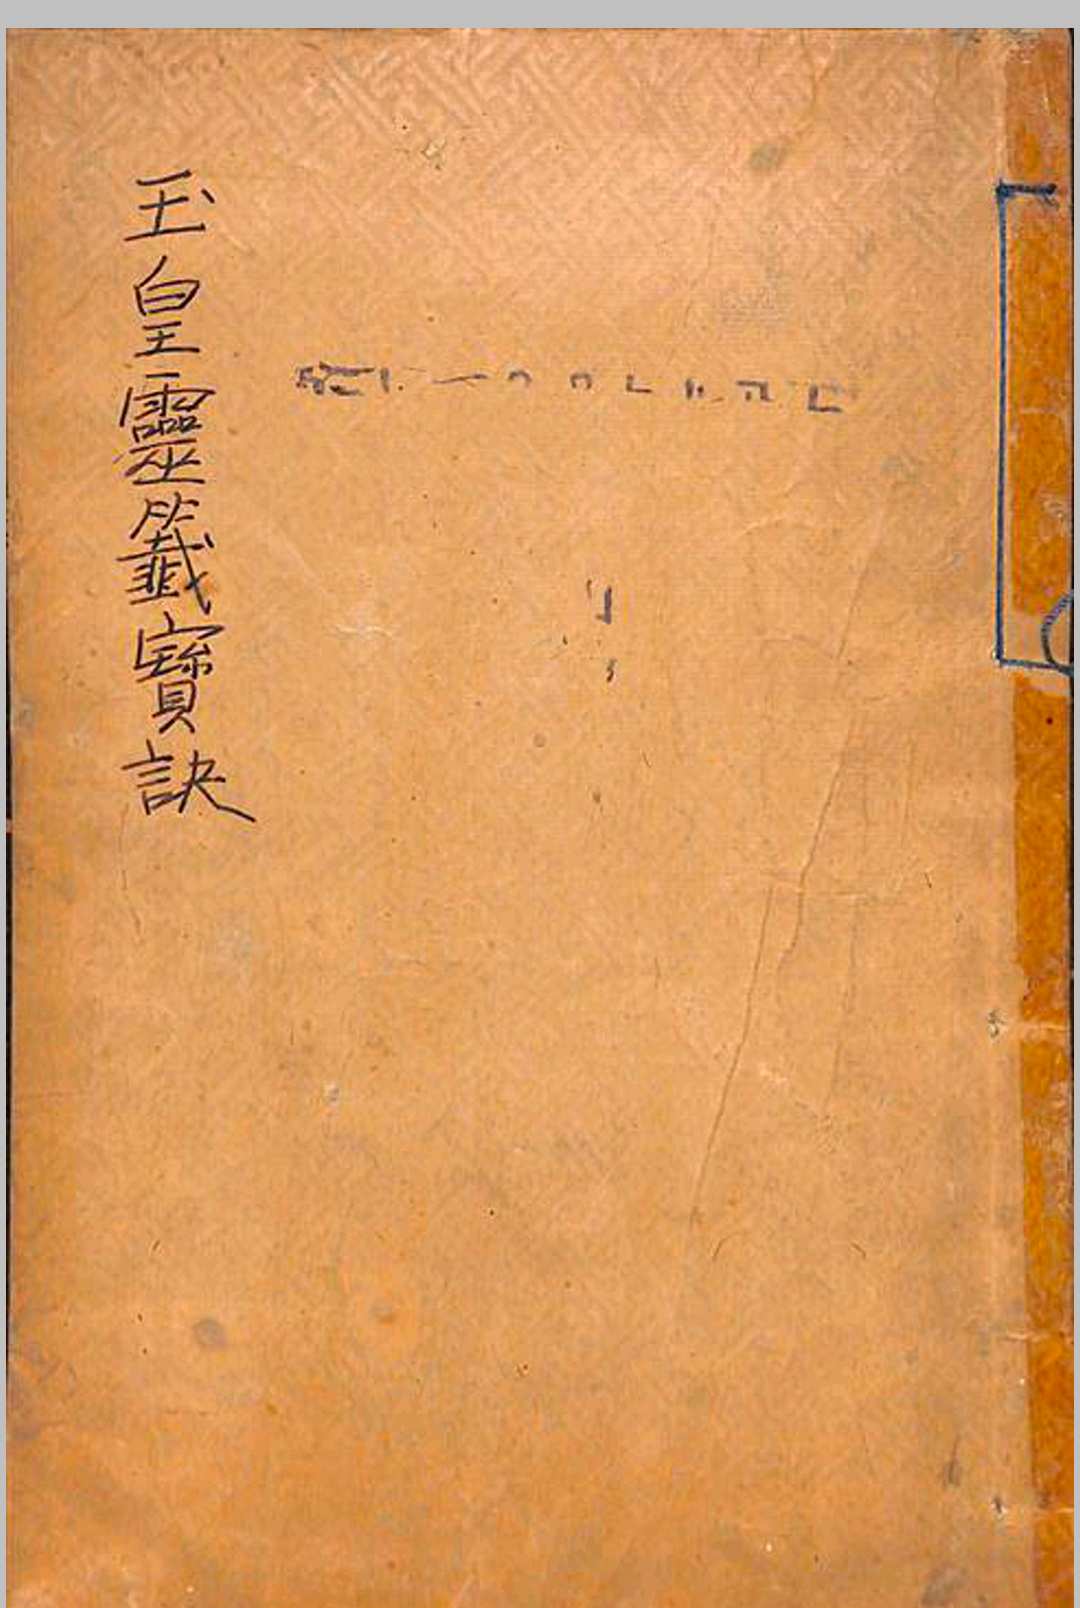 玉皇靈籤寶訣